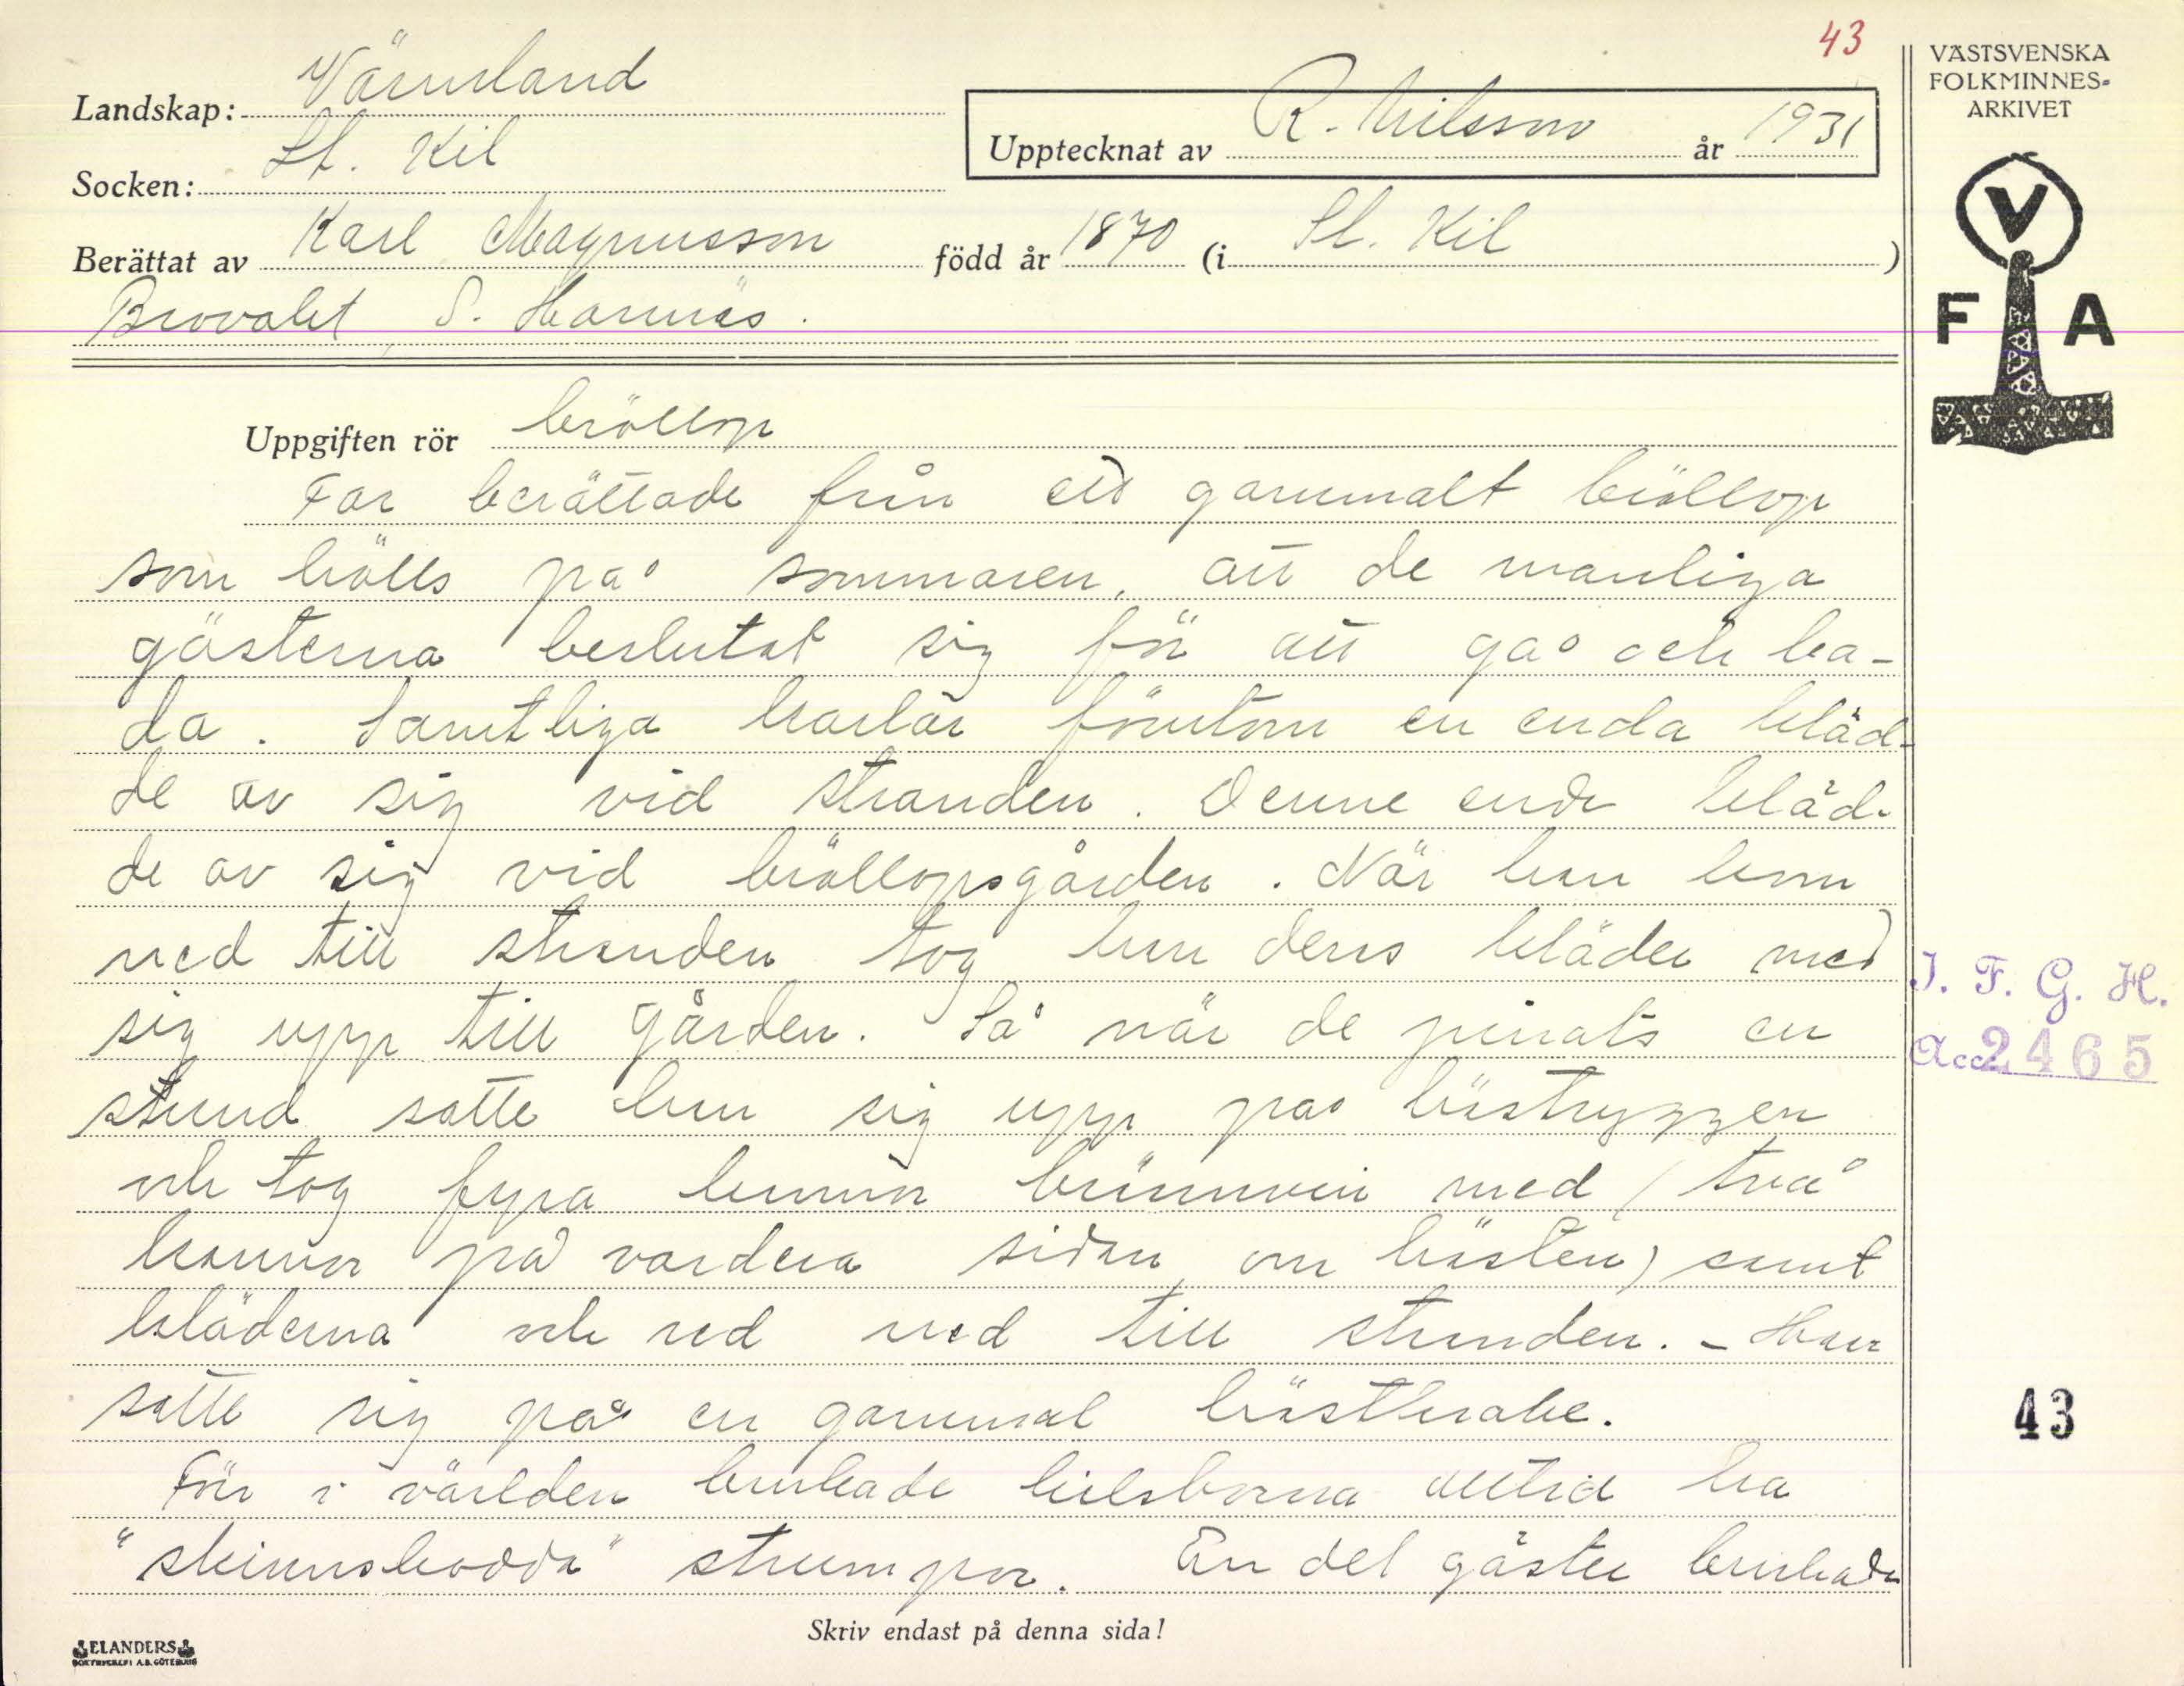 43
VÄSTSVENSKA
FOLKMINNES-
ARKIVET
Landskap: Värmland
Upptecknat av R. Nilsson år 1931
Socken: St. Kil
Berättat av Karl Magnusson född år 1870 (i St. Kil)
Brovalet, S. Hannäs.
V
F A
Uppgiften rör bröllop
Far berättade från ett gammalt bröllop
som hölls på sommaren, att de manliga
gästerna beslutat sig för att gå och ba-
da. Samtliga karlar förutom en enda kläd-
de av sig vid stranden. Denne ende kläd-
de av sig vid bröllopsgården. När han kom
ned till stranden tog han deras kläder med
sig upp till gården. Så när de pinats en
stund satte han sig upp på hästryggen
och tog fyra kannor brännvin med (två
kannor på vardera sidan om hästen) samt
kläderna och red ned till stranden. - Han
satte sig på en gammal hästkrake.
Förr i världen brukade kilsborna alltid ha
"skinnskodda" strumpor. En del gäster brukade
J. F. G. H.
Acc. 2465
43
Skriv endast på denna sida!
ELANDERS
BOKTRYCKERI A.B. GÖTEBORG